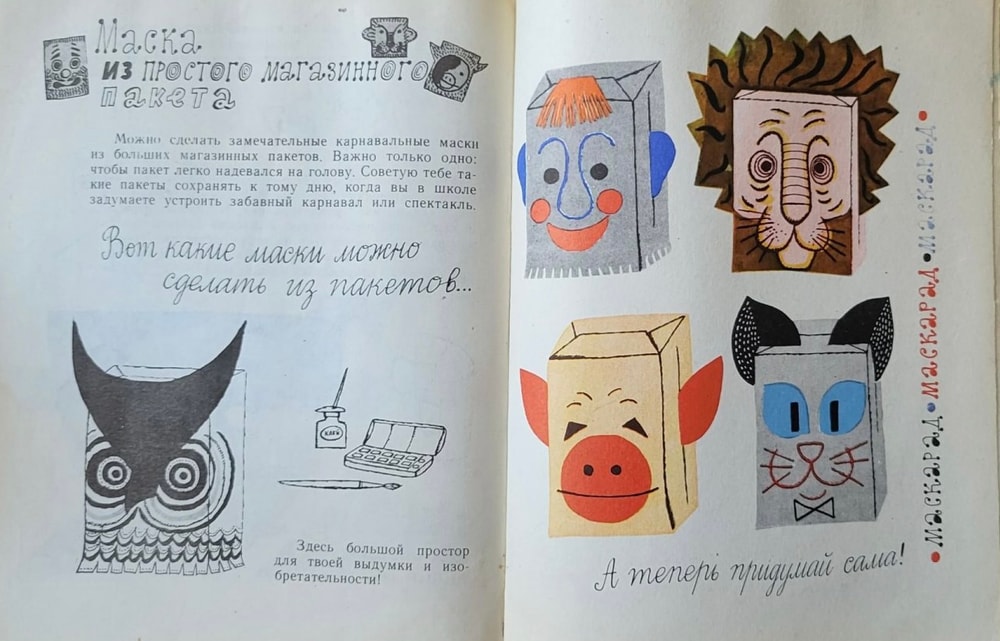 Маска
из простого магазинного
пакета
Можно сделать замечательные карнавальные маски
из больших магазинных пакетов. Важно только одно:
чтобы пакет легко надевался на голову. Советую тебе та-
кие пакеты сохранять к тому дню, когда вы в школе
задумаете устроить забавный карнавал или спектакль.
Вот какие маски можно
сделать из пакетов...
КЛЕЙ
Здесь большой простор
для твоей выдумки и изо-
бретательности!
• маскарад • маскарад • маскарад •
А теперь придумай сама!